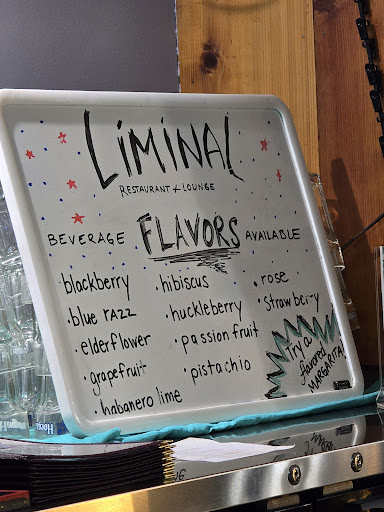 LiMiNAL
RESTAURANT + LOUNGE
BEVERAGE FLAVORS AVAILABLE
blackberry
• blue razz
• elderflower
• grapefruit
• habanero lime
• hibiscus
• huckleberry
• passion fruit
• pistachio
• rose
• strawberry
Try a
flavored
MARGARITA!